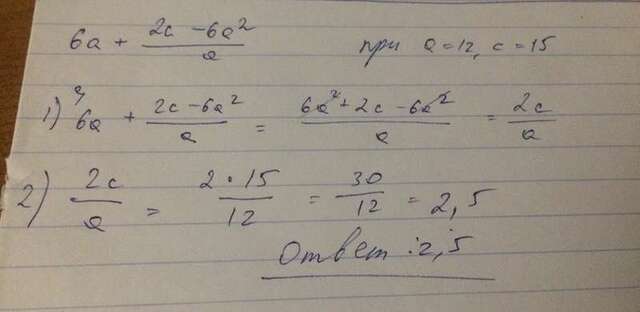 6a + (2c - 6a²)/a при a = 12, c = 15
1) 6a + (2c - 6a²)/a = (6a² + 2c - 6a²)/a = 2c/a
2) 2c/a = (2 · 15)/12 = 30/12 = 2,5
Ответ: 2,5